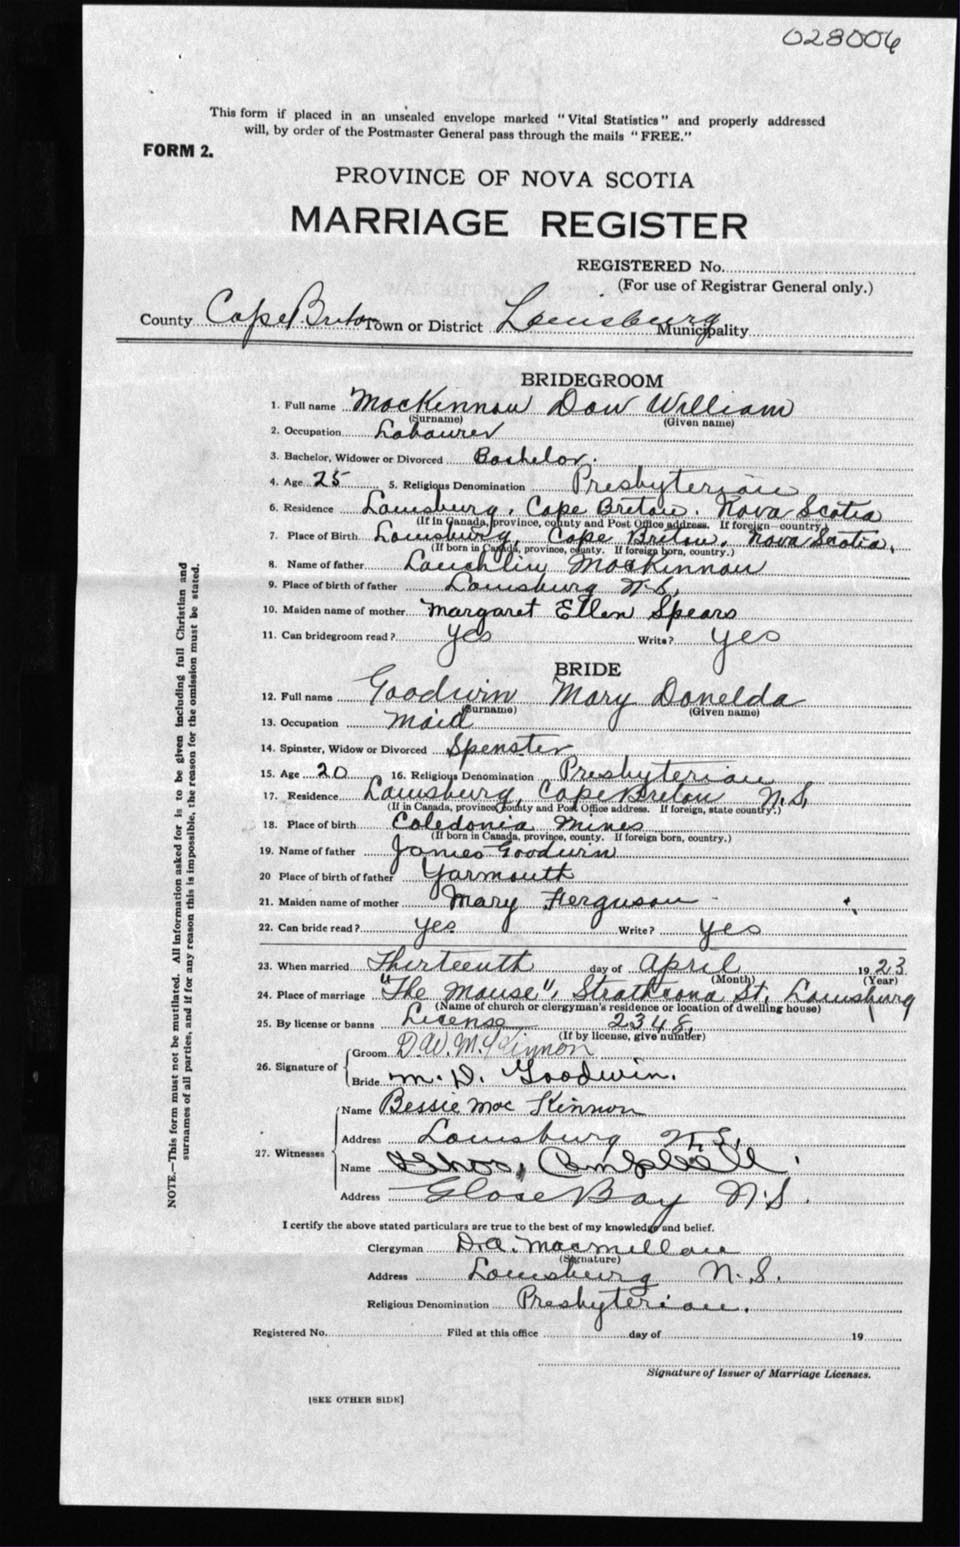 028006
This form if placed in an unsealed envelope marked "Vital Statistics" and properly addressed
will, by order of the Postmaster General pass through the mails "FREE."
FORM 2.
PROVINCE OF NOVA SCOTIA
MARRIAGE REGISTER
REGISTERED No.
(For use of Registrar General only.)
County Cape Breton Town or District Louisburg Municipality
BRIDEGROOM
1. Full name MacKinnon Dow William
(Surname) (Given name)
2. Occupation Labourer
3. Bachelor, Widower or Divorced Bachelor.
4. Age 25 5. Religious Denomination Presbyterian
6. Residence Louisburg, Cape Breton. Nova Scotia
(If in Canada, province, county and Post Office address. If foreign country.)
7. Place of Birth Louisburg, Cape Breton. Nova Scotia,
(If born in Canada, province, county. If foreign born, country.)
8. Name of father Lauchlin MacKinnon
9. Place of birth of father Louisburg N.S,
10. Maiden name of mother Margaret Ellen Spears
11. Can bridegroom read? yes Write? yes
BRIDE
12. Full name Goodwin Mary Donelda
(Surname) (Given name)
13. Occupation Maid
14. Spinster, Widow or Divorced Spenster
15. Age 20 16. Religious Denomination Presbyterian
17. Residence Louisburg, Cape Breton N.S,
(If in Canada, province county and Post Office address. If foreign, state country.)
18. Place of birth Caledonia Mines
(If born in Canada, province, county. If foreign born, country.)
19. Name of father James Goodwin
20 Place of birth of father Yarmouth
21. Maiden name of mother Mary Ferguson
22. Can bride read? yes Write? yes
23. When married Thirteenth day of April 1923
(Month) (Year)
24. Place of marriage "The Manse", Strathcona St, Louisburg
(Name of church or clergyman's residence or location of dwelling house)
25. By license or banns License 2348,
(If by license, give number)
26. Signature of Groom D.W. McKinnon
Bride M. D. Goodwin.
27. Witnesses Name Bessie Mac Kinnon
Address Louisburg N.S,
Name Campbell
Address Glace Bay N.S.
I certify the above stated particulars are true to the best of my knowledge and belief.
Clergyman D.A. Macmillan
(Signature)
Address Louisburg N.S.
Religious Denomination Presbyterian.
Registered No. Filed at this office day of 19
Signature of Issuer of Marriage Licenses.
[SEE OTHER SIDE]
NOTE.—This form must not be mutilated. All information asked for is to be given including full Christian and
surnames of all parties, and if for any reason this is impossible, the reason for the omission must be stated.